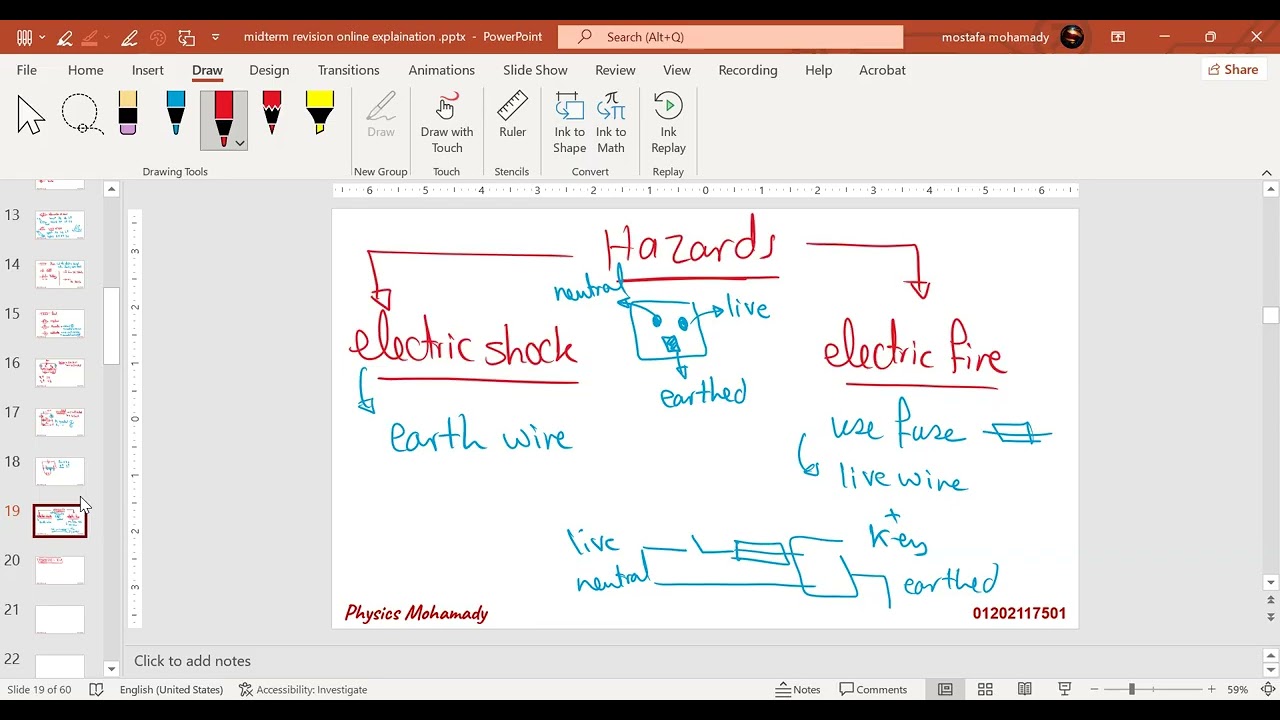 midterm revision online explaination .pptx - PowerPoint
Search (Alt+Q)
mostafa mohamady
File Home Insert Draw Design Transitions Animations Slide Show Review View Recording Help Acrobat
Share
Draw
Draw with Touch
Ruler
Ink to Shape
Ink to Math
Ink Replay
Drawing Tools
New Group
Touch
Stencils
Convert
Replay
6 5 4 3 2 1 0 1 2 3 4 5 6
3 2 1 0 1 2 3
13
14
15
16
17
18
19
20
21
22
Hazards
neutral
live
electric shock
electric fire
earthed
earth wire
use fuse
live wire
+
key
live
neutral
earthed
Physics Mohamady
01202117501
Click to add notes
Slide 19 of 60
English (United States)
Accessibility: Investigate
Notes
Comments
59%